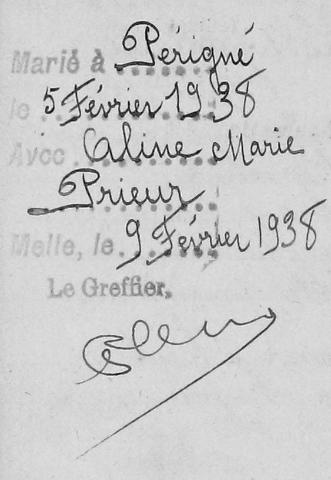 Marié à Périgné
le 5 Février 1938
Avec Caline Marie
Prieur
Melle, le 9 Février 1938
Le Greffier,